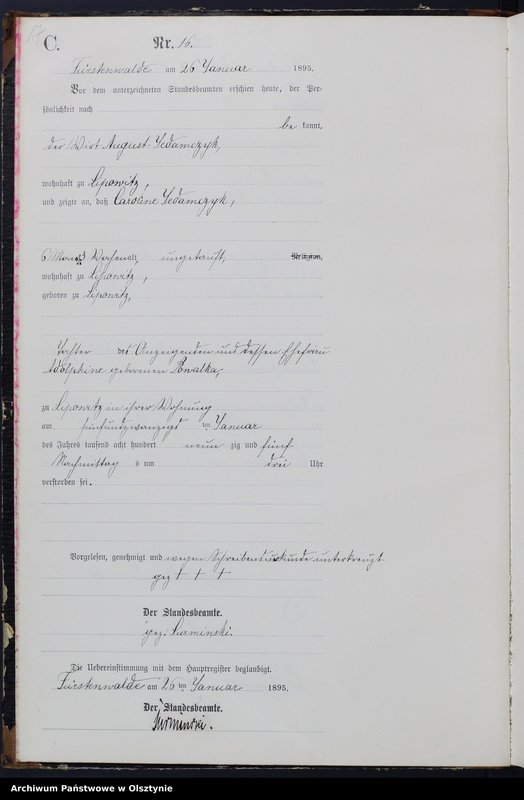 17
C.
Nr. 16.
Fürstenwalde am 26 Januar 1895.
Vor dem unterzeichneten Standesbeamten erschien heute, der Per-
sönlichkeit nach
be kannt,
der Wirt August Jedamczyk,
wohnhaft zu Lipowitz,
und zeigte an, daß Caroline Jedamczyk,
6 Mon. 3 Wochen alt, ungetauft,
wohnhaft zu Lipowitz,
geboren zu Lipowitz,
Tochter des Anzeigenden und dessen Ehefrau
Adolphine geborenen Kowalka,
zu Lipowitz in ihrer Wohnung
am fünfundzwanzigsten Januar
des Jahres tausend acht hundert neunzig und fünf
Nachmittags um drei Uhr
verstorben sei.
Vorgelesen, genehmigt und wegen Schreibensunkunde unterkreuzt
gez + + +
Der Standesbeamte.
gez. Surminski.
Die Uebereinstimmung mit dem Hauptregister beglaubigt.
Fürstenwalde am 26ten Januar 1895.
Der Standesbeamte.
Surminski.
Archiwum Państwowe w Olsztynie